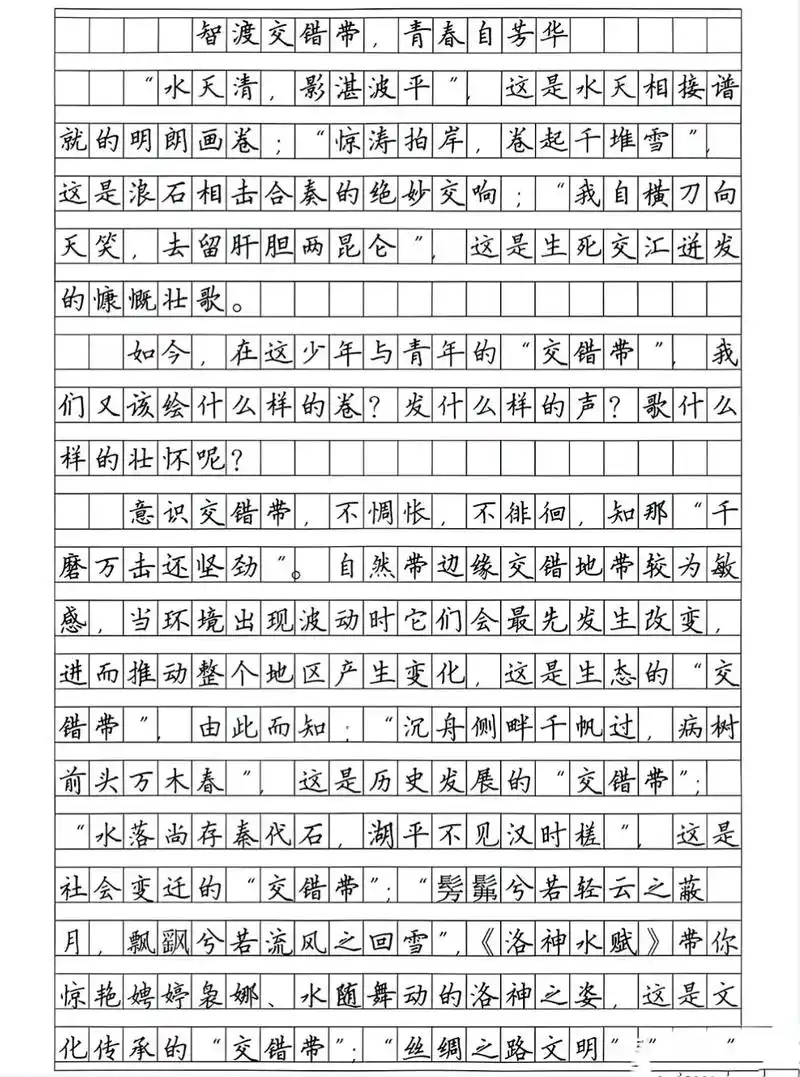 智渡交错带，青春自芳华
“水天清，影湛波平”，这是水天相接谱
就的明朗画卷；“惊涛拍岸，卷起千堆雪”，
这是浪石相击合奏的绝妙交响；“我自横刀向
天笑，去留肝胆两昆仑”，这是生死交汇迸发
的慷慨壮歌。
如今，在这少年与青年的“交错带”，我
们又该绘什么样的卷？发什么样的声？歌什么
样的壮怀呢？
意识交错带，不惆怅，不徘徊，知那“千
磨万击还坚劲”。自然带边缘交错地带较为敏
感，当环境出现波动时它们会最先发生改变，
进而推动整个地区产生变化，这是生态的“交
错带”，由此而知：“沉舟侧畔千帆过，病树
前头万木春”，这是历史发展的“交错带”；
“水落尚存秦代石，湖平不见汉时槎”，这是
社会变迁的“交错带”；“髣髴兮若轻云之蔽
月，飘飖兮若流风之回雪”，《洛神水赋》带你
惊艳娉婷袅娜、水随舞动的洛神之姿，这是文
化传承的“交错带”；“丝绸之路文明”“ ”